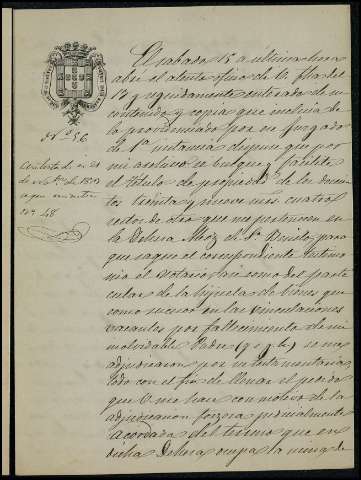 El sabado 15 a ultima hora
abri el atento oficio de V. fha del
13 y seguidamente enterado de su
contenido y copia que incluia de
lo providenciado por ese Juzgado
de 1ª instancia dispuse que por
mi archivo se busque y facilite
el titulo de propiedad de los
treinta y nueve mas cuatro
de otro que me pertenecen en
la Dehesa de Sn Benito, para
que saque el correspondiente testimo-
nio el Notario, asi como del parti-
cular de la hijuela de bienes que
como sucesor en las vinculaciones
vacantes por fallecimiento de mi
inolvidable Padre (q. s. g. h.) se me
adjudicaron por su testamentaria,
todo con el fin de llenar el pedido
que V. me hace con motivo de la
adjudicacion forzosa judicialmente
acordada del terreno que en
dicha Dehesa ocupa la mina de
Nº 56.
de 18
nº 48